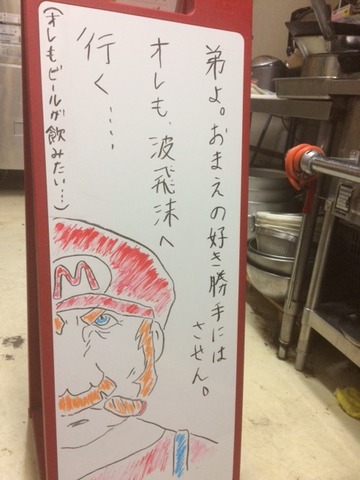 弟よ。おまえの好き勝手には
させん。
オレも、波飛沫へ
行く……
(オレもビールが飲みたい…)
M